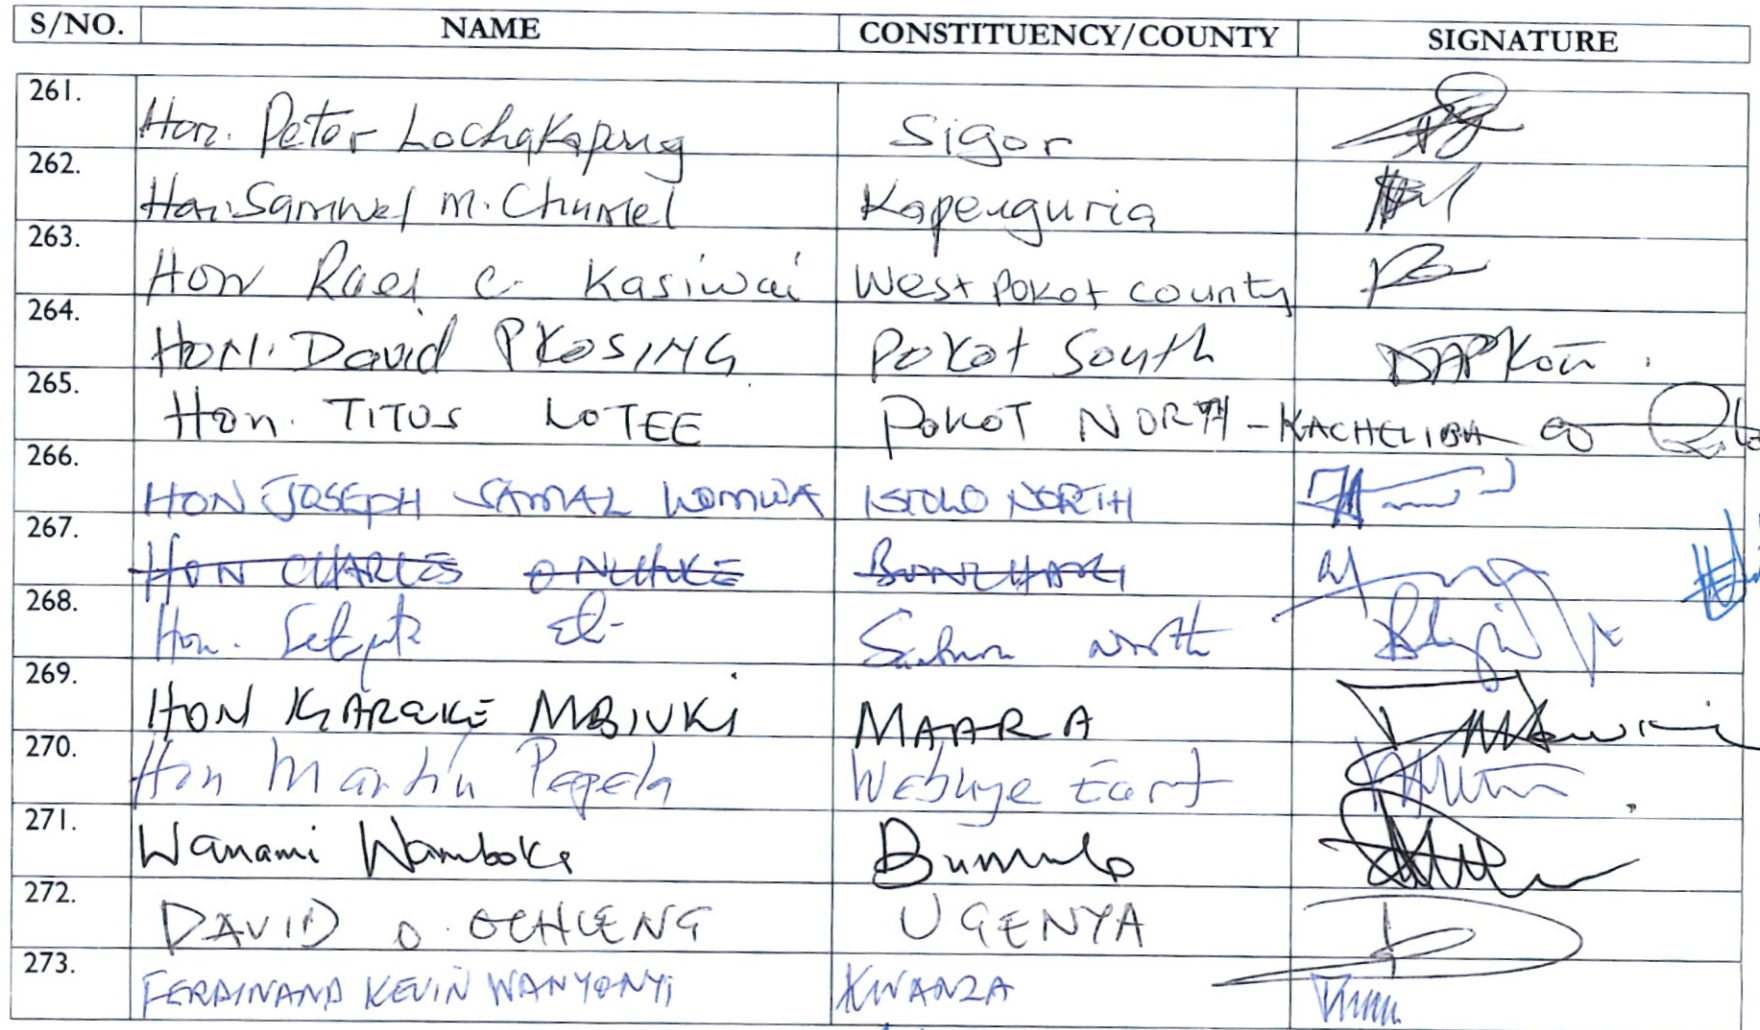 S/NO. NAME CONSTITUENCY/COUNTY SIGNATURE
261. Hon. Peter Lochakapong Sigor
262. Hon. Samuel M. Chumel Kapenguria
263. Hon Rael C. Kasiwai West Pokot County
264. HON. David PKOSING Pokot South
265. Hon. TITUS LOTEE POKOT NORTH - KACHELIBA
266. HON JOSEPH SAMAL LOMWA ISIOLO NORTH
267. HON CHARLES ONCHOKE BONCHARI
268. Hon. North
269. HON KAREKE MBIUKI MAARA
270. Hon Martin Pepela Webuye East
271. Wanami Wamboka Bumula
272. DAVID O. OCHIENG UGENYA
273. FERDINAND KEVIN WANYONYI KWANZA